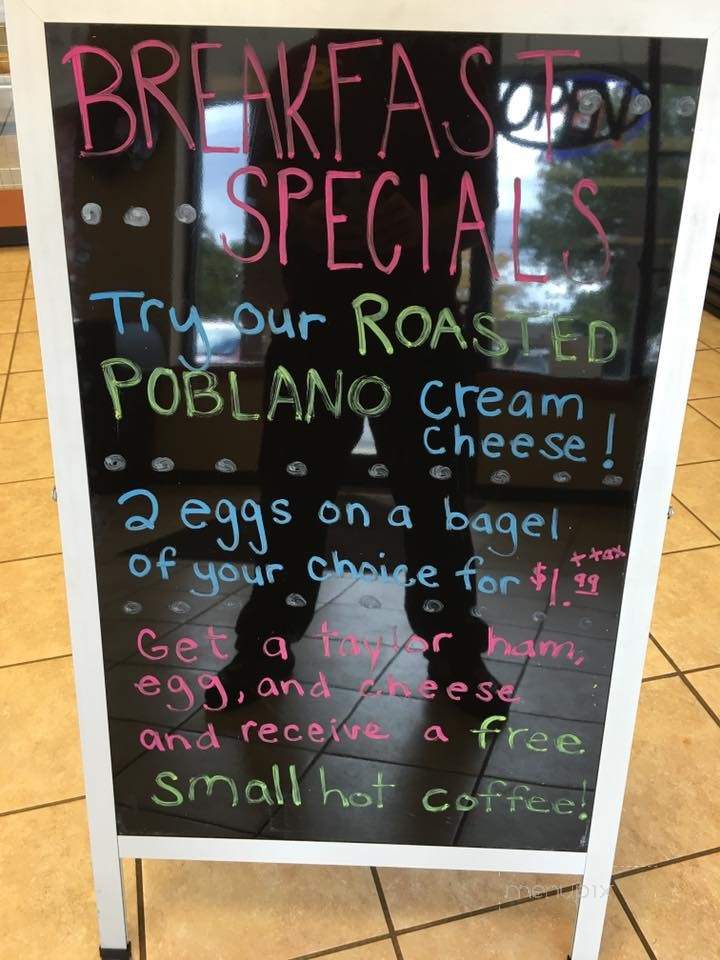 BREAKFAST
OPEN
... SPECIALS
Try our ROASTED
POBLANO Cream
Cheese!
2 eggs on a bagel
of your choice for $1.99 + tax
Get a taylor ham,
egg, and cheese
and receive a free
small hot coffee!
menupix